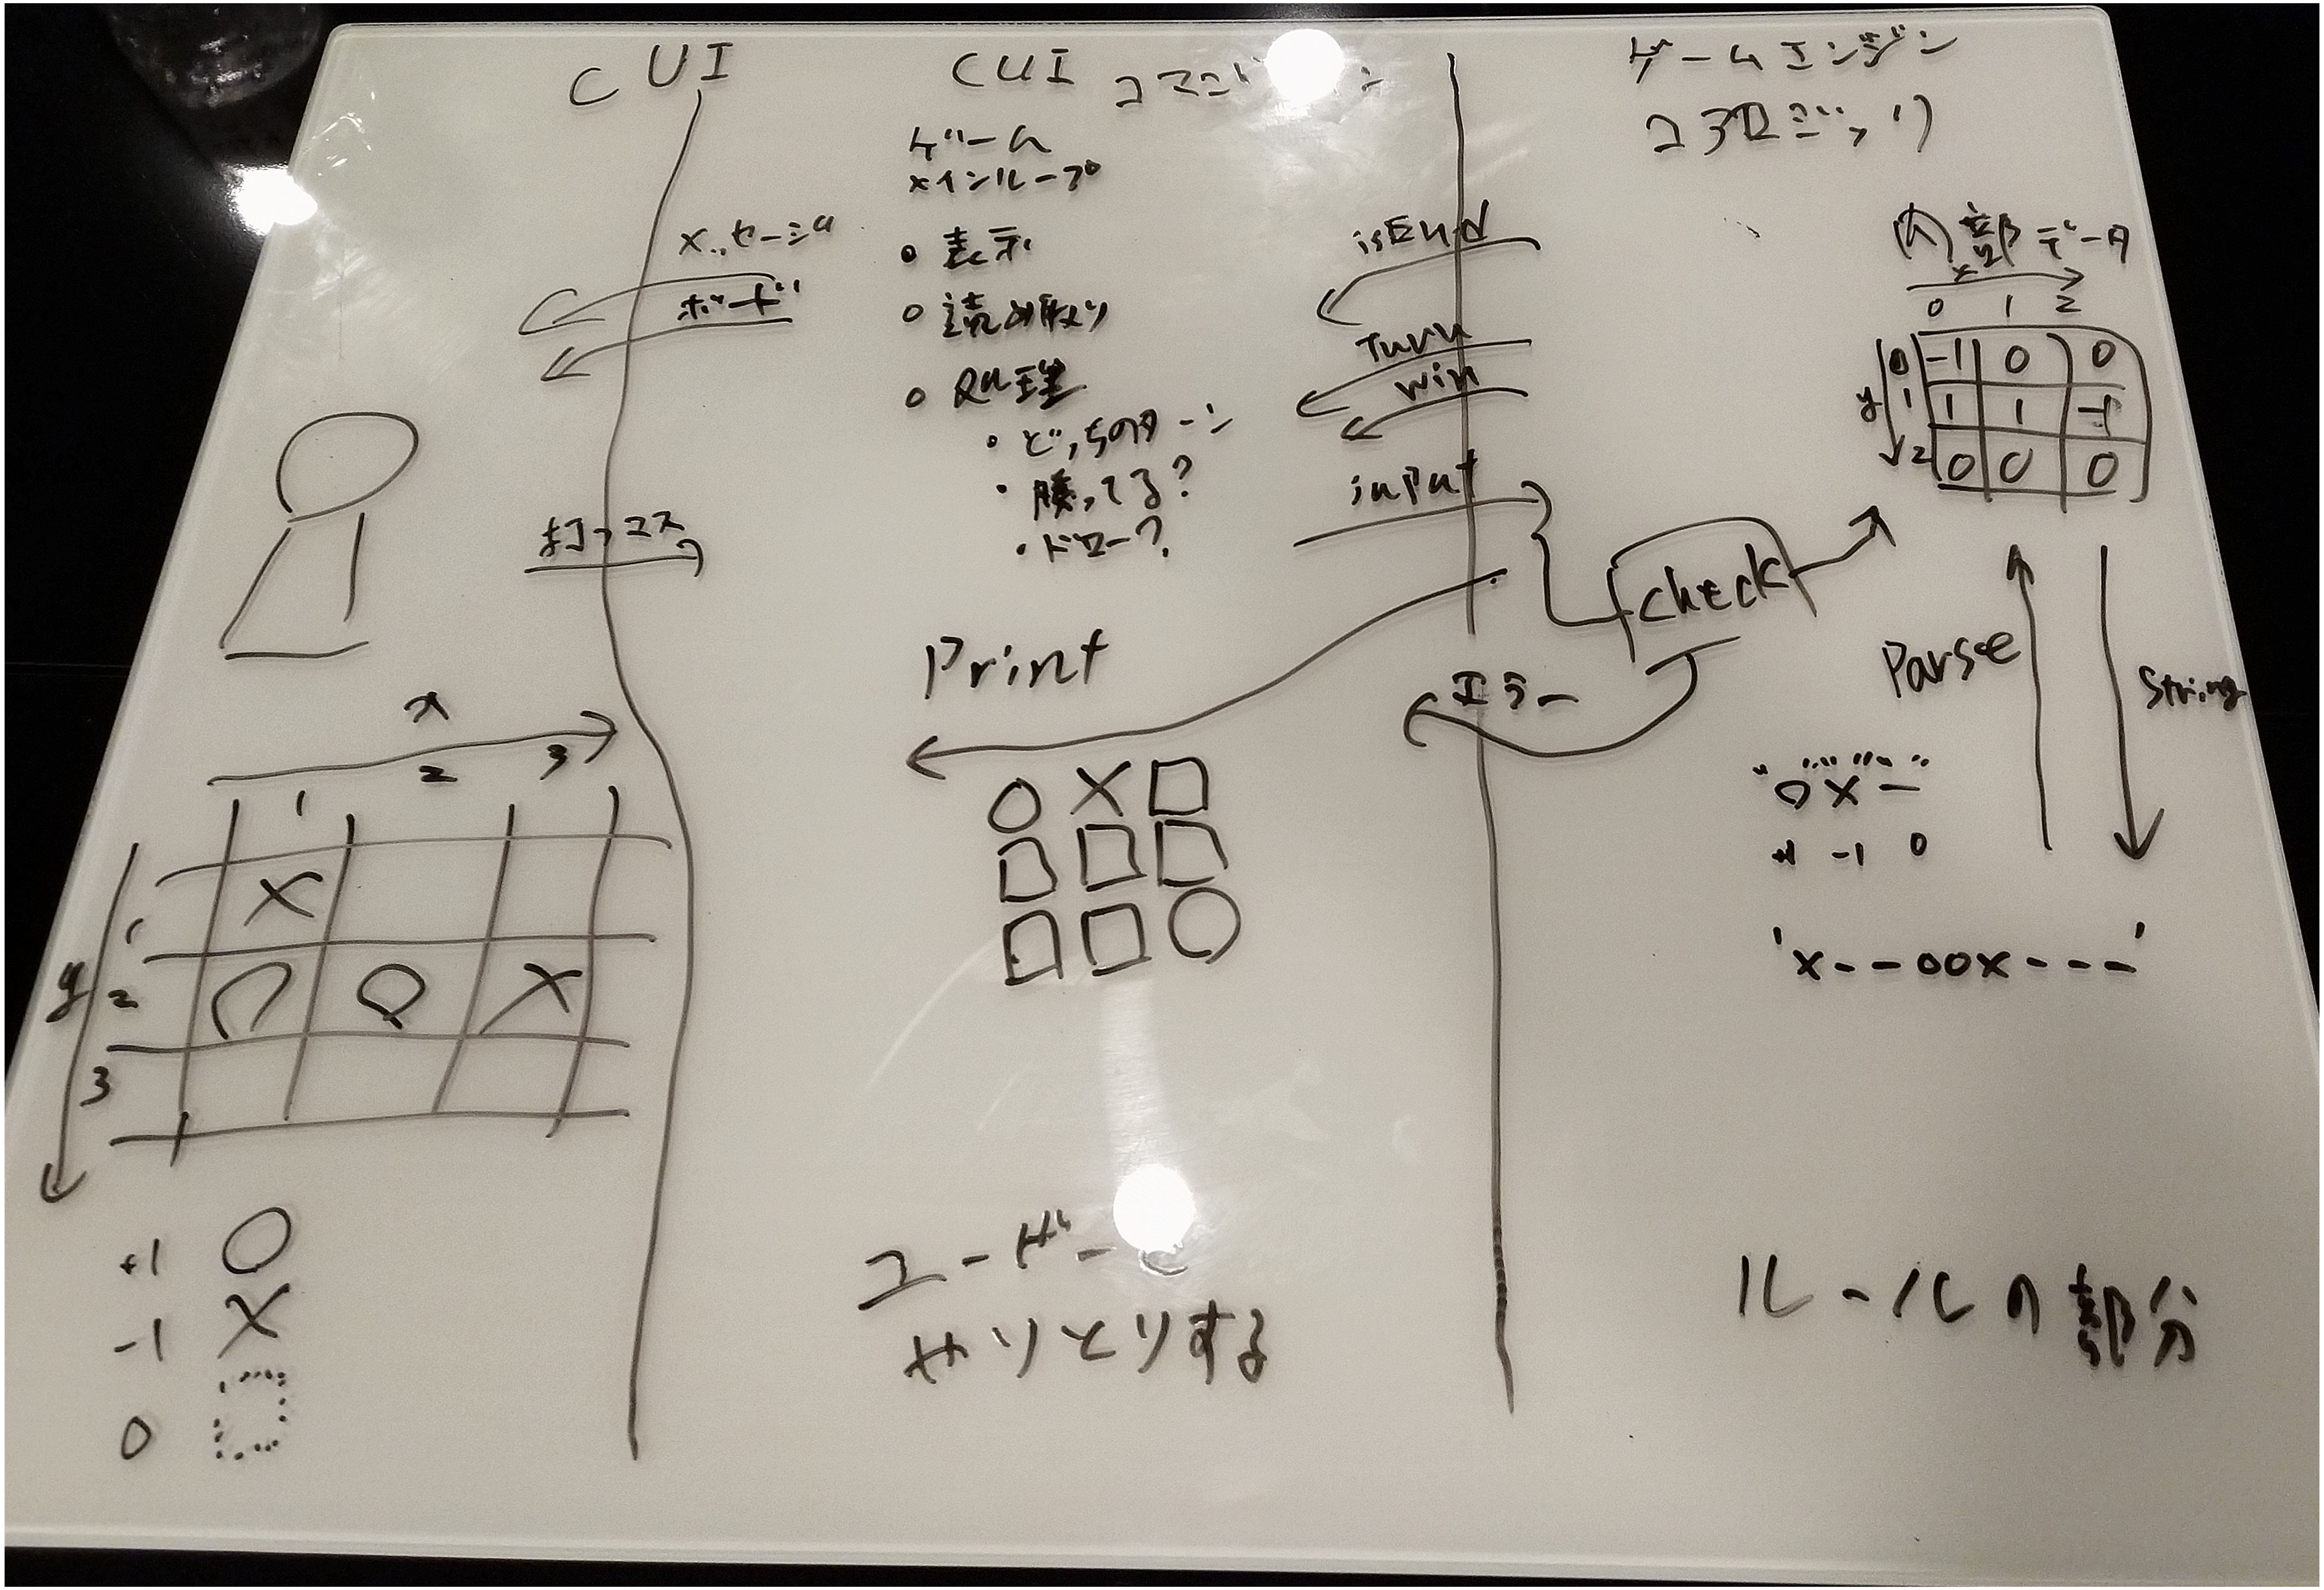 CUI
メッセージ
ボード
打つマス
x
1 2 3
y
1
2
3
X
O O X
+1 O
-1 X
0
CUI
ゲーム
メインループ
• 表示
• 読み取り
• 処理
• どっちのターン
• 勝ってる?
• ドロー?
Print
O X □
□ □ □
□ □ O
ユーザーと
やりとりする
isEnd
Turn
win
input
check
エラー
ゲームエンジン
コアロジック
内部データ
x
0 1 2
y
0 -1 0 0
1 1 1 -1
2 0 0 0
Parse
String
"OX-"
+1 -1 0
'x--oox---'
ルールの部分